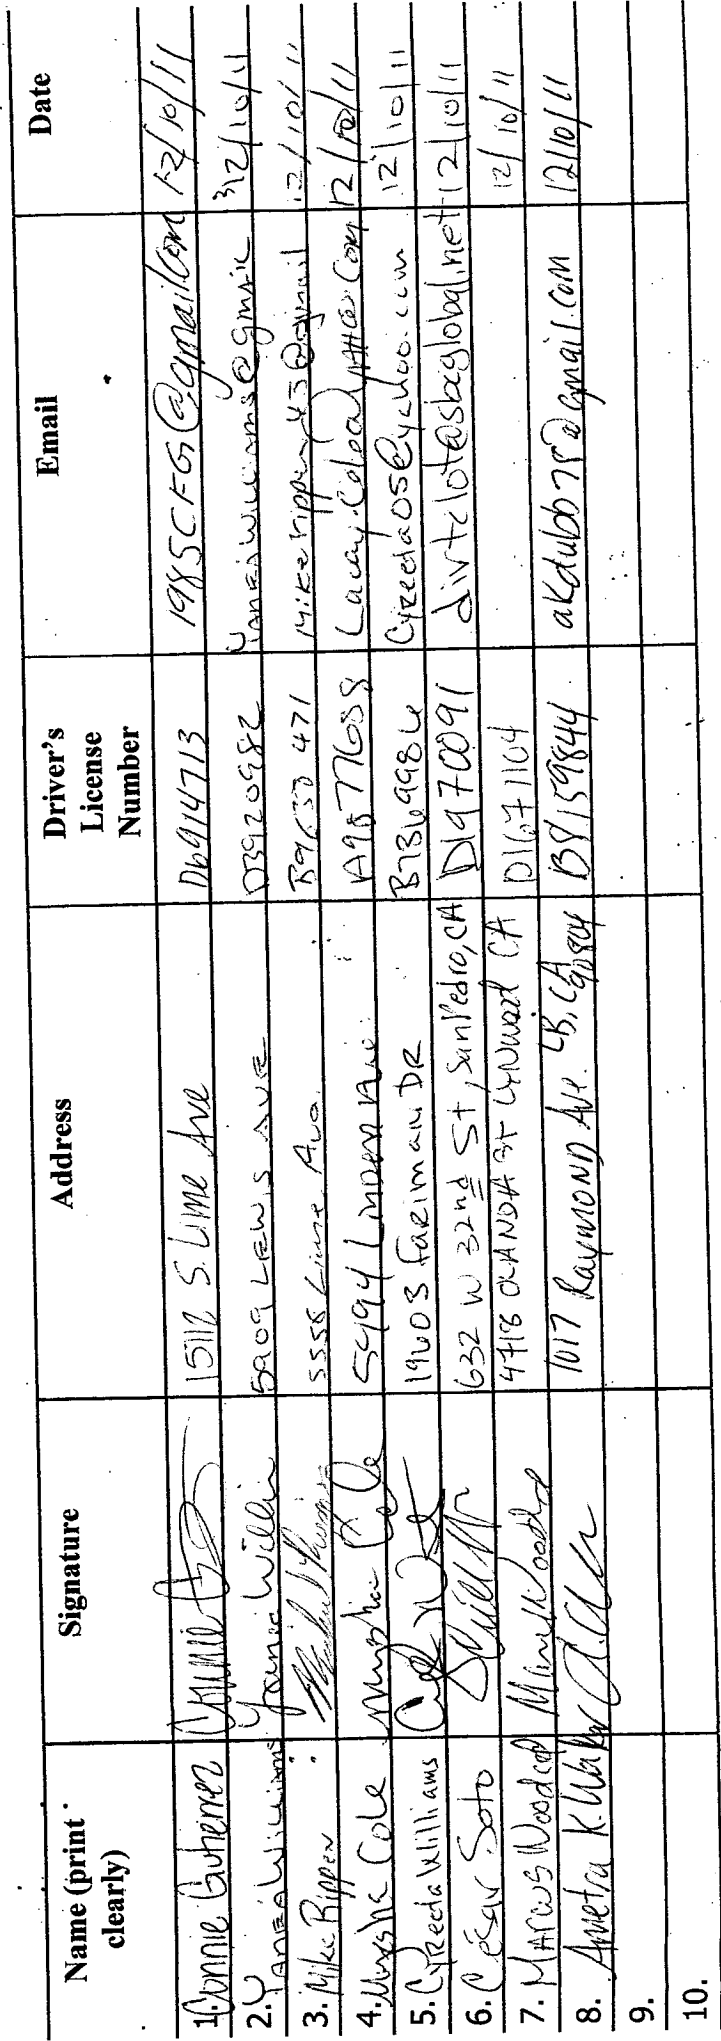 Name (print clearly) Signature Address Driver's License Number Email Date
1. Connie Gutierrez Connie 15112 S. Lime Ave D6914713 1985CFG@gmail.com 12/10/11
2. Yanea Williams 5909 Lewis Ave D3920982 YaneaWilliams@gmail 12/10/11
3. Mike Rippen 5556 Lime Ava. 471 12/10/11
4. Cole 5494 Linden Ave. 12/10/11
5. Cyreeda Williams 19603 Fariman DR B7369986 Cyreeda05@yahoo.com 12/10/11
6. César Soto 632 W 32nd St, San Pedro, CA D1970091 dirtclot@sbcglobal.net 12/10/11
7. Marcus Woodcod 4718 OLANDA St Lynwood CA D1671104 12/10/11
8. Ametra K. Walker 1017 Raymond Ave. LB, CA 90804 B8159844 akdubb78@gmail.com 12/10/11
9.
10.